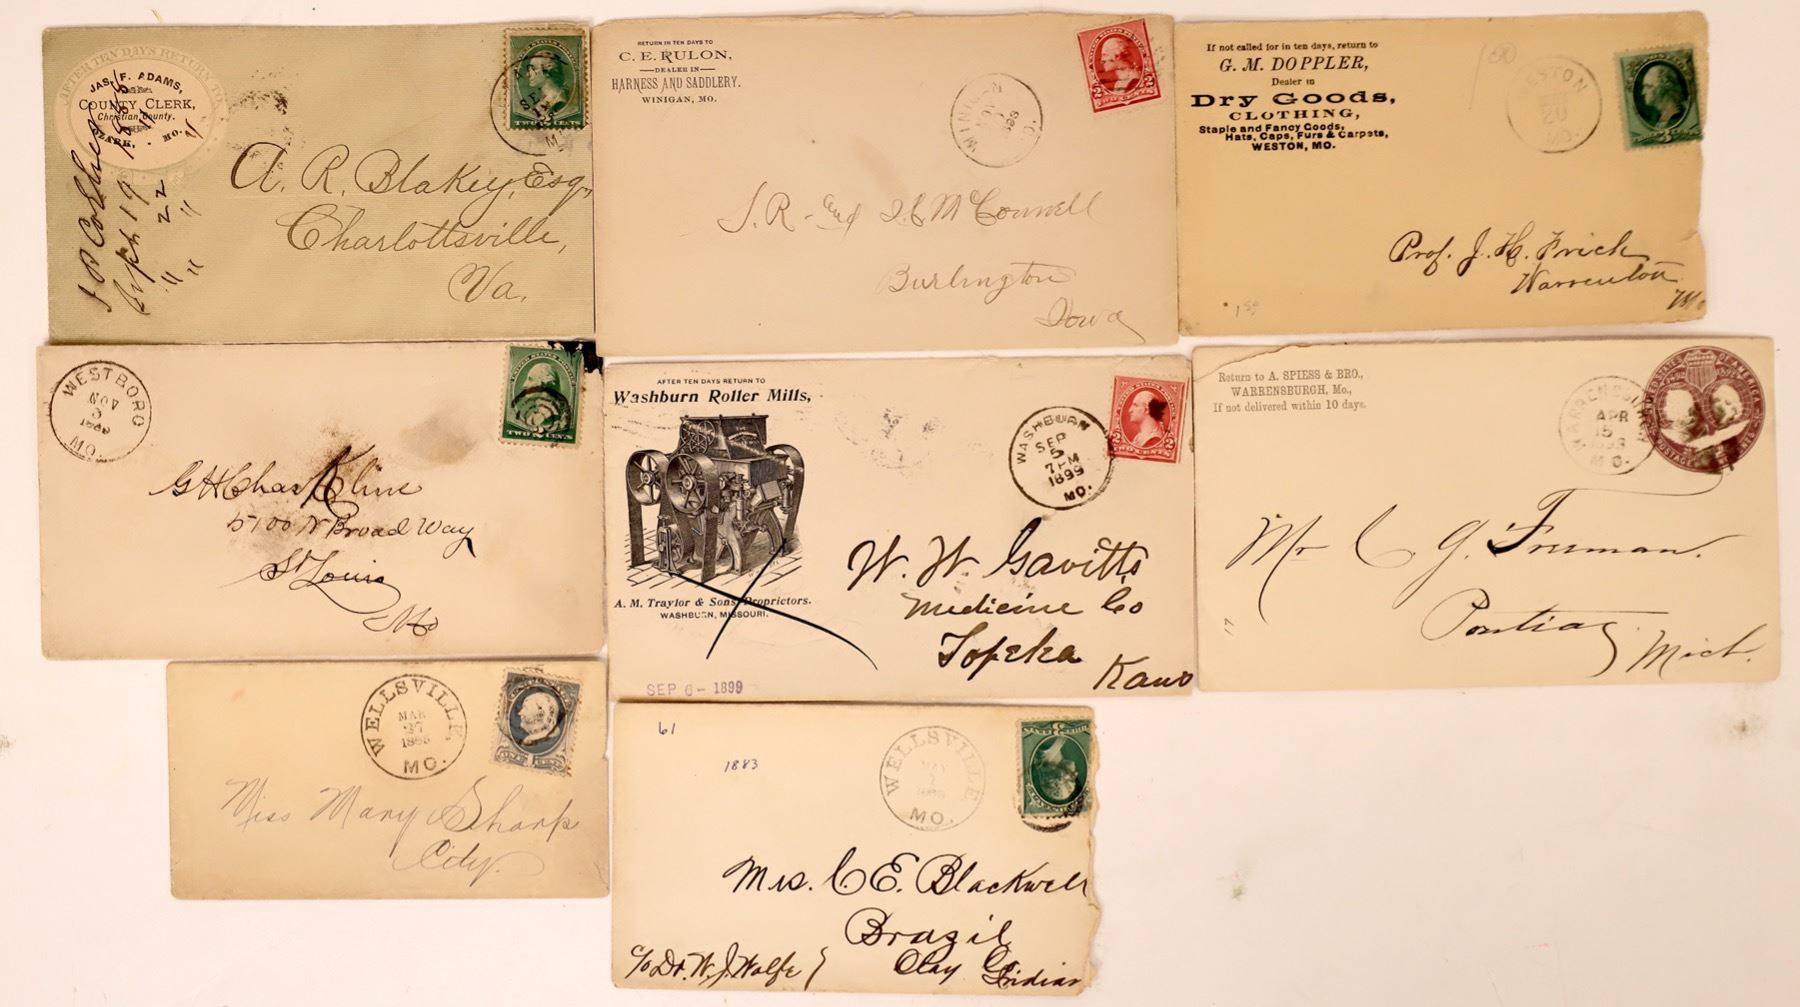 AFTER TEN DAYS RETURN TO
JAS. F. ADAMS,
COUNTY CLERK,
Christian County.
OZARK, MO.
Sept 19
" 22
" "
A. R. Blakey, Esq,
Charlottsville,
Va.
TWO CENTS
RETURN IN TEN DAYS TO
C. E. RULON,
DEALER IN
HARNESS AND SADDLERY.
WINIGAN, MO.
2 2
TWO CENTS
J. R. and J. C. McConnell
Burlington
Iowa
If not called for in ten days, return to
G. M. DOPPLER,
Dealer in
Dry Goods,
CLOTHING,
Staple and Fancy Goods,
Hats, Caps, Furs & Carpets,
WESTON, MO.
WESTON
20
MO.
Prof. J. H. Frick
Warrenton
Mo
WESTBORO
NOV
MO.
TWO CENTS
Chas Kline
5100 N Broad Way
St Louis
Mo
AFTER TEN DAYS RETURN TO
Washburn Roller Mills,
A. M. Traylor & Sons, Proprietors.
WASHBURN, MISSOURI.
WASHBURN
SEP
5
7 PM
1899
MO.
2 2
TWO CENTS
W. W. Gavitts
Medicine Co
Topeka
Kans
SEP 6 - 1899
Return to A. SPIESS & BRO.,
WARRENSBURGH, Mo.,
If not delivered within 10 days.
WARRENSBURGH
APR
15
1893
MO.
UNITED STATES OF AMERICA
Mr C G. Freeman.
Pontiac
Mich.
17
WELLSVILLE
MAR
27
MO.
Miss Mary Sharp
City.
61
1883
WELLSVILLE
MAY
MO.
Mrs. C. E. Blackwell
Brazil
Clay Co
Indian
c/o Dr. W. J. Wolfe